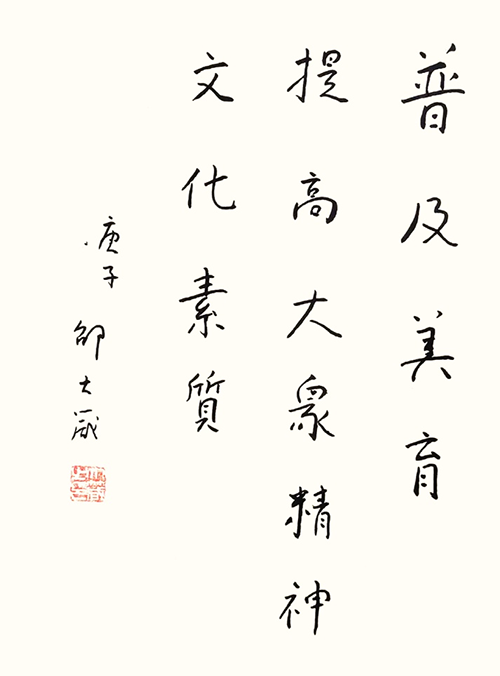 普及美育
提高大眾精神
文化素質
庚子
邵大箴